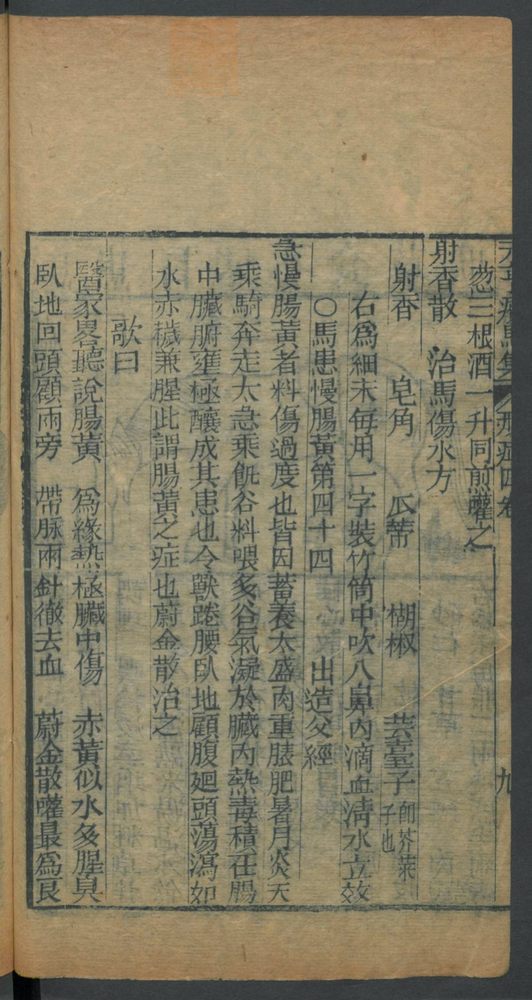 葱三根酒一升同煎嚾之
射香散　治馬傷水方
射香　皂角　瓜蒂　楜椒　芸薹子即芥菜子也
右爲細末每用一字裝竹筒中吹八鼻內滴血清水立效
〇馬患慢腸黃第四十四　出造父經
急慢腸黃者料傷過度也皆因蓄養太盛肉重膘肥暑月炎天
乘騎奔走太急乘飢谷料喂多谷氣凝於臟內熱毒積在腸
中臟腑壅極釀成其患也令獸踡腰臥地顧腹廻頭蕩瀉如
水赤穢兼腥此謂腸黃之症也蔚金散治之
歌曰
醫家畧聽說腸黃　爲緣熱極臟中傷　赤黃似水多腥臭
臥地回頭顧兩旁　帶脉兩針徹去血　蔚金散嚾最爲良